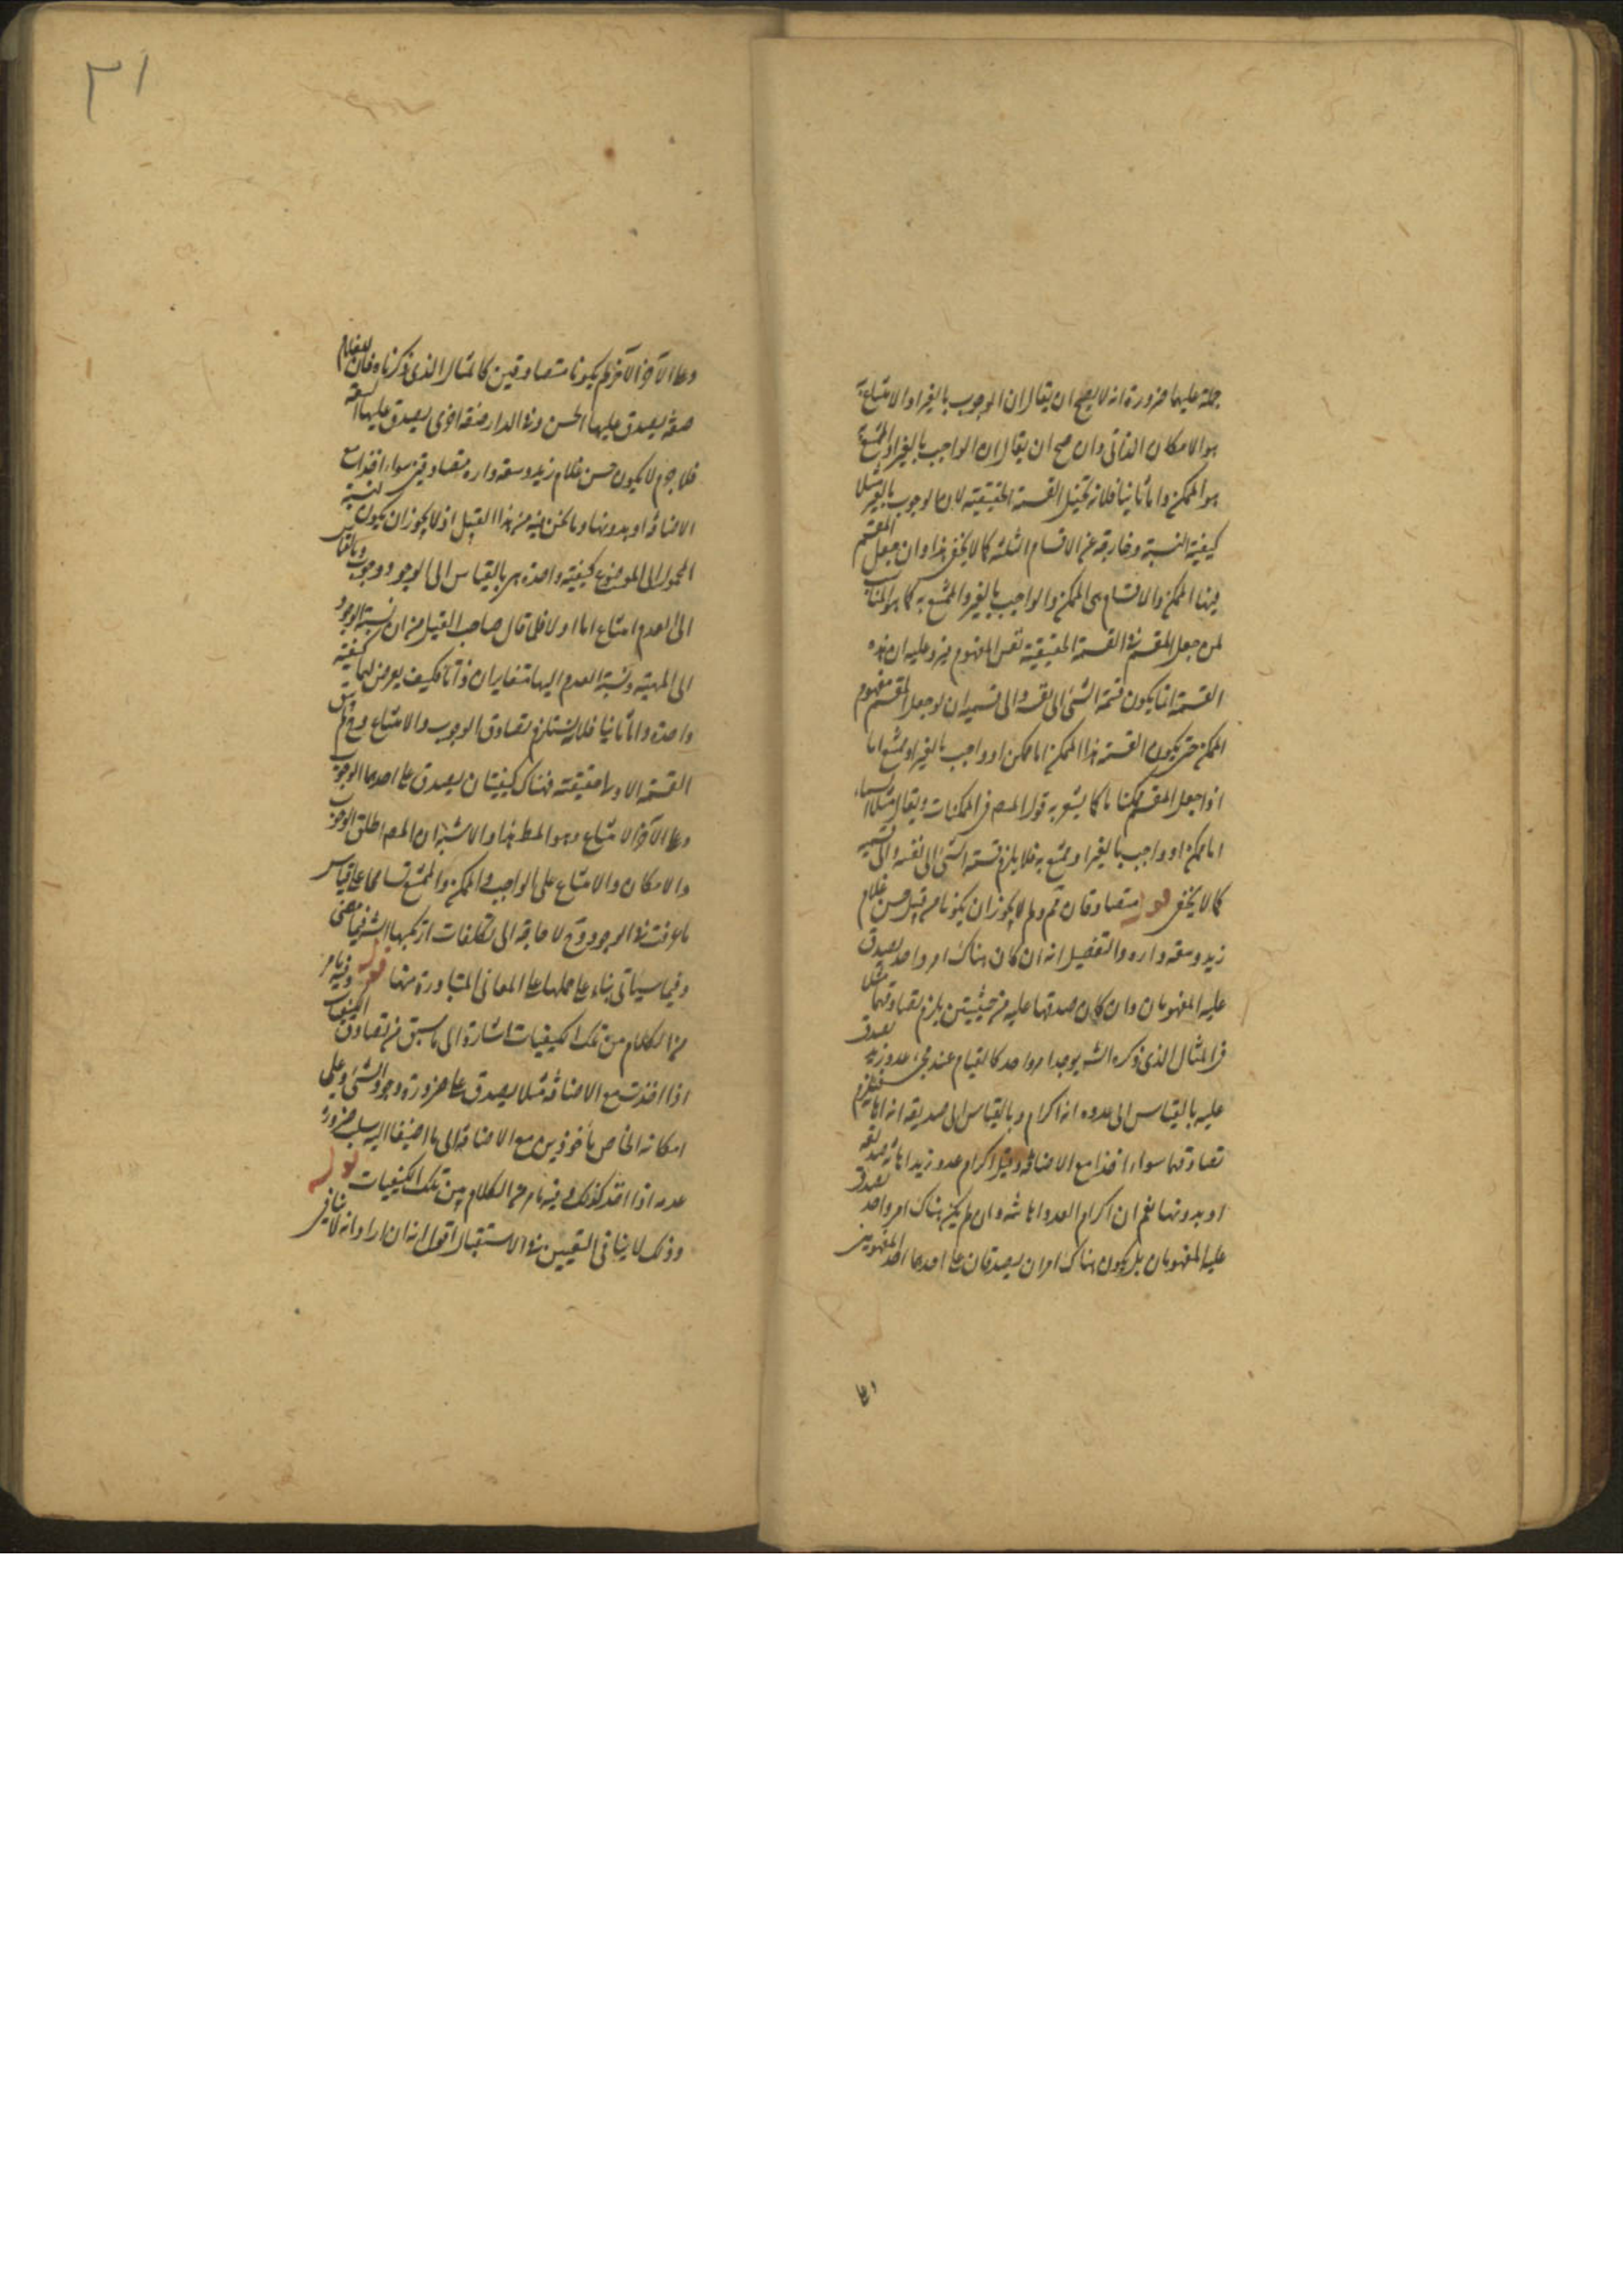 حمله عليهما ضرورة انه لا يصح ان يقال ان الوجوب بالغير او الامتناع به
هو الامكان الذاتى وان صح ان يقال ان الواجب بالغير او الممتنع به
هو الممكن واما ثانيا فلانه تختل القسمة الحقيقية لان الوجوب بالغير مثلا
كيفية النسبة وخارجة عن الاقسام الثلثة كما لا يخفى هذا وان جعل المقسم
فيها الممكن والاقسام هى الممكن والواجب بالغير والممتنع به كما هو المناسب
لمن جعل المقسم فى القسمة الحقيقية نفس المفهوم فيرد عليه ان هذه
القسمة انما يكون قسمة الشئ الى نفسه والى قسيميه ان لو جعل المقسم مفهوم
الممكن حتى يكون القسمة هذا الممكن اما ممكن او واجب بالغير او ممتنع اما
اذا جعل المقسم ممكنا ما كما يشعر به قول المصـ فى الممكنات ويقال مثلا
اما ممكن او واجب بالغير او ممتنع به فلا يلزم قسمة الشئ الى نفسه والى قسيميه
كما لا يخفى قوله متصادقان ثم ولم لا يجوز ان يكونا من قبيل حسن غلام
زيد وسعة داره والتفصيل انه ان كان هناك امر واحد يصدق
عليه المفهومان وان كان صدقهما عليه من حيثيتين يلزم تصادقهما مثلا
فى المثال الذى ذكره الشـ يوجد امر واحد كالقيام عند مجئ عدو زيد يصدق
عليه بالقياس الى عدوه انه اكرام وبالقياس الى صديقه انه اهانة فيلزم
تصادقهما سواء اخذا مع الاضافة وقيل اكرام عدو زيد اهانة صديقه
او بدونها نعم ان اكرام العدو اهانته وان لم يكن هناك امر واحد يصدق
عليه المفهومان بل يكون هناك امران يصدقان على احدهما احد المفهومين
وعلى الآخر الآخر لم يكونا متصادقين كالمثال الذى ذكرناه فان للغلام
صفة يصدق عليها الحسن وفى الدار صفة اخرى يصدق عليها السعة
فلا جرم لا يكون حسن غلام زيد وسعة داره متصادقين سواء اخذا مع
الاضافة او بدونها وما نحن فيه من هذا القبيل اذ لا يجوز ان يكون لنسبة
المحمول الى الموضوع كيفية واحدة هى بالقياس الى الوجود وجوب وبالقياس
الى العدم امتناع اما اولا فلما قال صاحب القيل من ان نسبة الوجود
الى المهية ونسبة العدم اليها متغايران ذاتا فكيف يعرض لهما كيفية
واحدة واما ثانيا فلانه يستلزم تصادق الوجوب والامتناع وح لم يبق
القسمة الاولى حقيقية فهناك كيفيتان يصدق على احديهما الوجوب
وعلى الآخر الامتناع وهو المط هذا والاشبه ان المصـ اطلق الوجوب
والامكان والامتناع على الواجب والممكن والممتنع تسامحا على قياس
ما عرفت فى الوجود وح لا حاجة الى تكلفات ارتكبها الشـ فيما مضى
وفيما سيأتى بناء على حملها على المعانى المتبادرة منها قوله وفيه ما مر
من الكلام من تلك الكيفيات اشارة الى ما سبق من تصادق الكيفيات
اذا اخذت مع الاضافة مثلا يصدق على ضرورة وجود الشئ وعلى
امكانه الخاص مأخوذين مع الاضافة الى ما اضيفا اليه سلب ضرورة
عدمه اذا اخذ كذلك قوله وفيه ما مر من الكلام من تلك الكيفيات قوله
وذلك لا ينافى التعيين فى الاستقبال اقول انه ان اراد انه لا ينافى